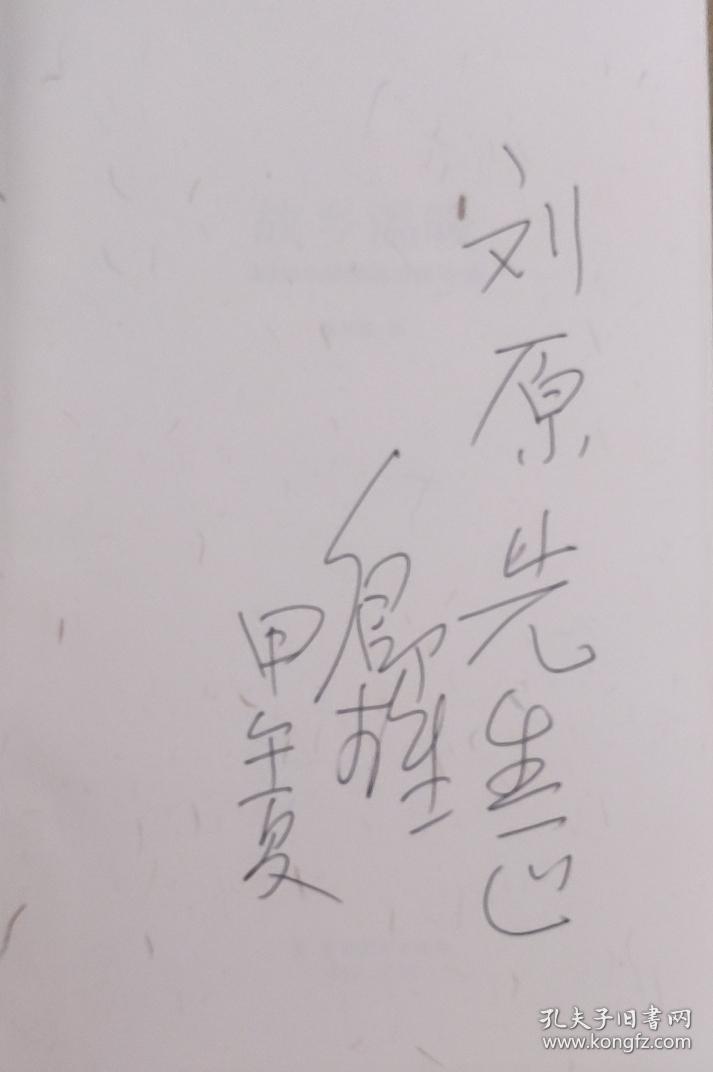 刘原先生正
甲午夏
孔夫子旧書网
www.kongfz.com